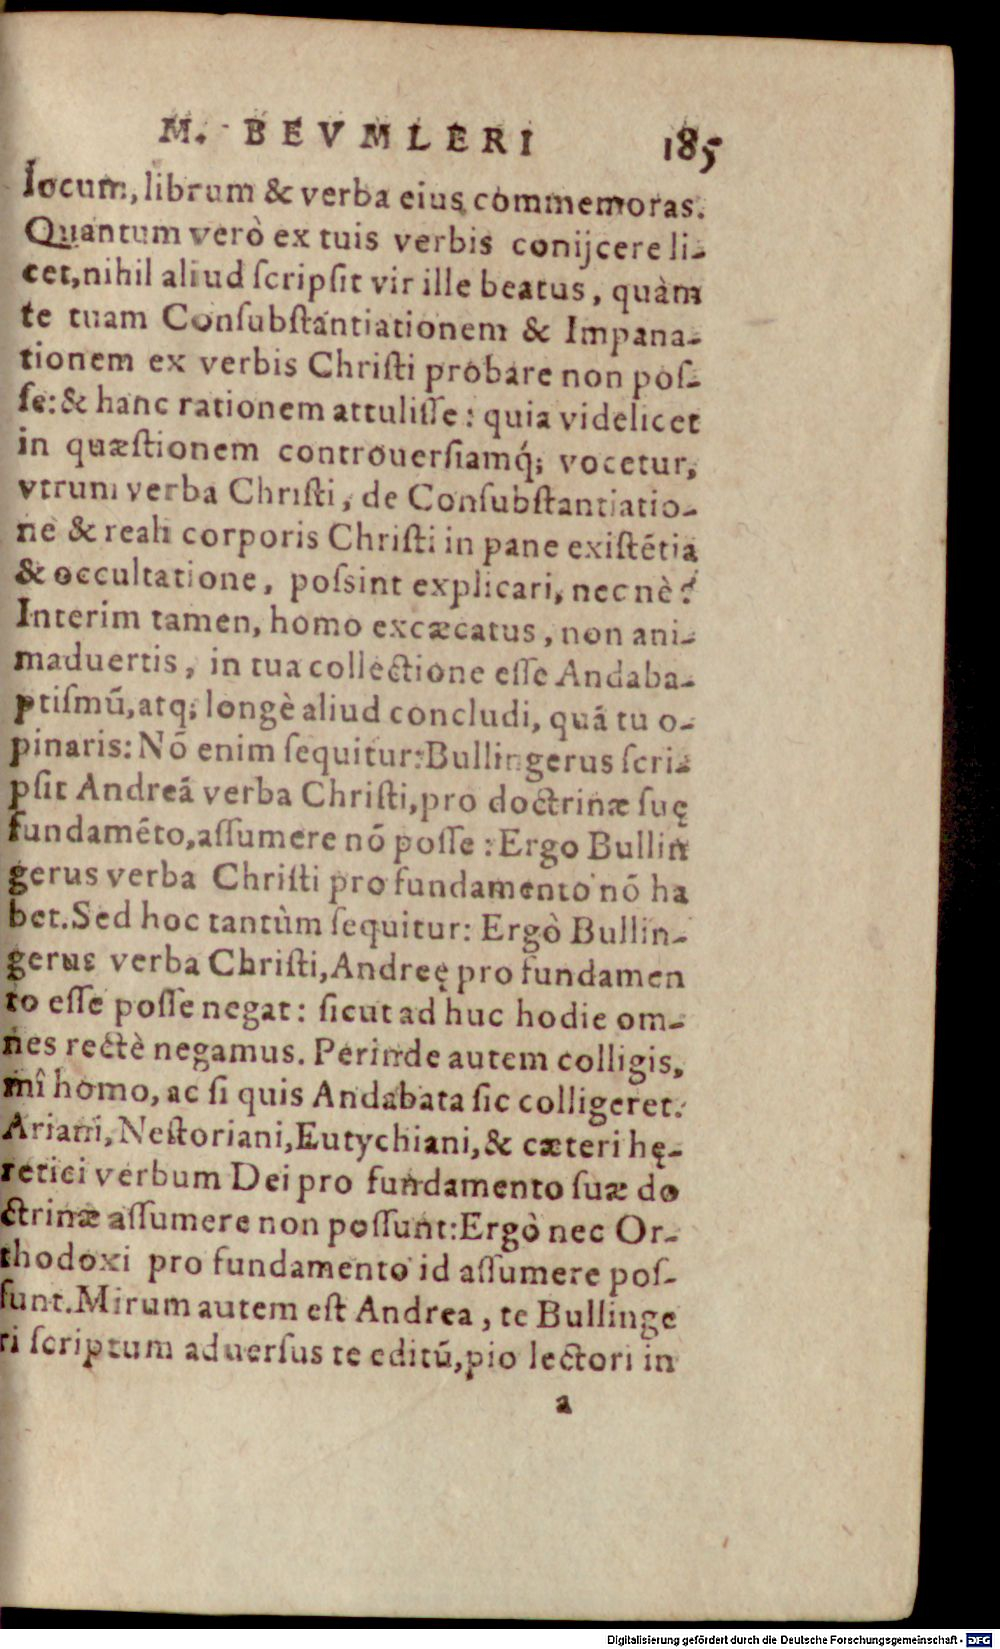 M. BEVMLERI 185
locum, librum & verba eius commemoras.
Quantum verò ex tuis verbis conijcere li-
cet, nihil aliud ſcripſit vir ille beatus, quàm
te tuam Conſubſtantiationem & Impana-
tionem ex verbis Chriſti probare non poſ-
ſe: & hanc rationem attuliſſe: quia videlicet
in quæſtionem controuerſiamq́; vocetur,
vtrum verba Chriſti, de Conſubſtantiatio-
ne & reali corporis Chriſti in pane exiſtētia
& occultatione, poſsint explicari, nec nè?
Interim tamen, homo excæcatus, non ani-
maduertis, in tua collectione eſſe Andaba-
ptiſmū, atq; longè aliud concludi, quā tu o-
pinaris: Nō enim ſequitur: Bullingerus ſcri-
pſit Andreā verba Chriſti, pro doctrinæ ſuę
fundamēto, aſſumere nō poſſe: Ergo Bullin
gerus verba Chriſti pro fundamento nō ha
bet. Sed hoc tantùm ſequitur: Ergò Bullin-
gerus verba Chriſti, Andreę pro fundamen
to eſſe poſſe negat: ſicut ad huc hodie om-
nes rectè negamus. Perinde autem colligis,
mî homo, ac ſi quis Andabata ſic colligeret.
Ariani, Neſtoriani, Eutychiani, & cæteri hę-
retici verbum Dei pro fundamento ſuæ do
ctrinæ aſſumere non poſſunt: Ergò nec Or-
thodoxi pro fundamento id aſſumere poſ-
ſunt. Mirum autem eſt Andrea, te Bullinge
ri ſcriptum aduerſus te editū, pio lectori in
a
Digitalisierung gefördert durch die Deutsche Forschungsgemeinschaft - DFG